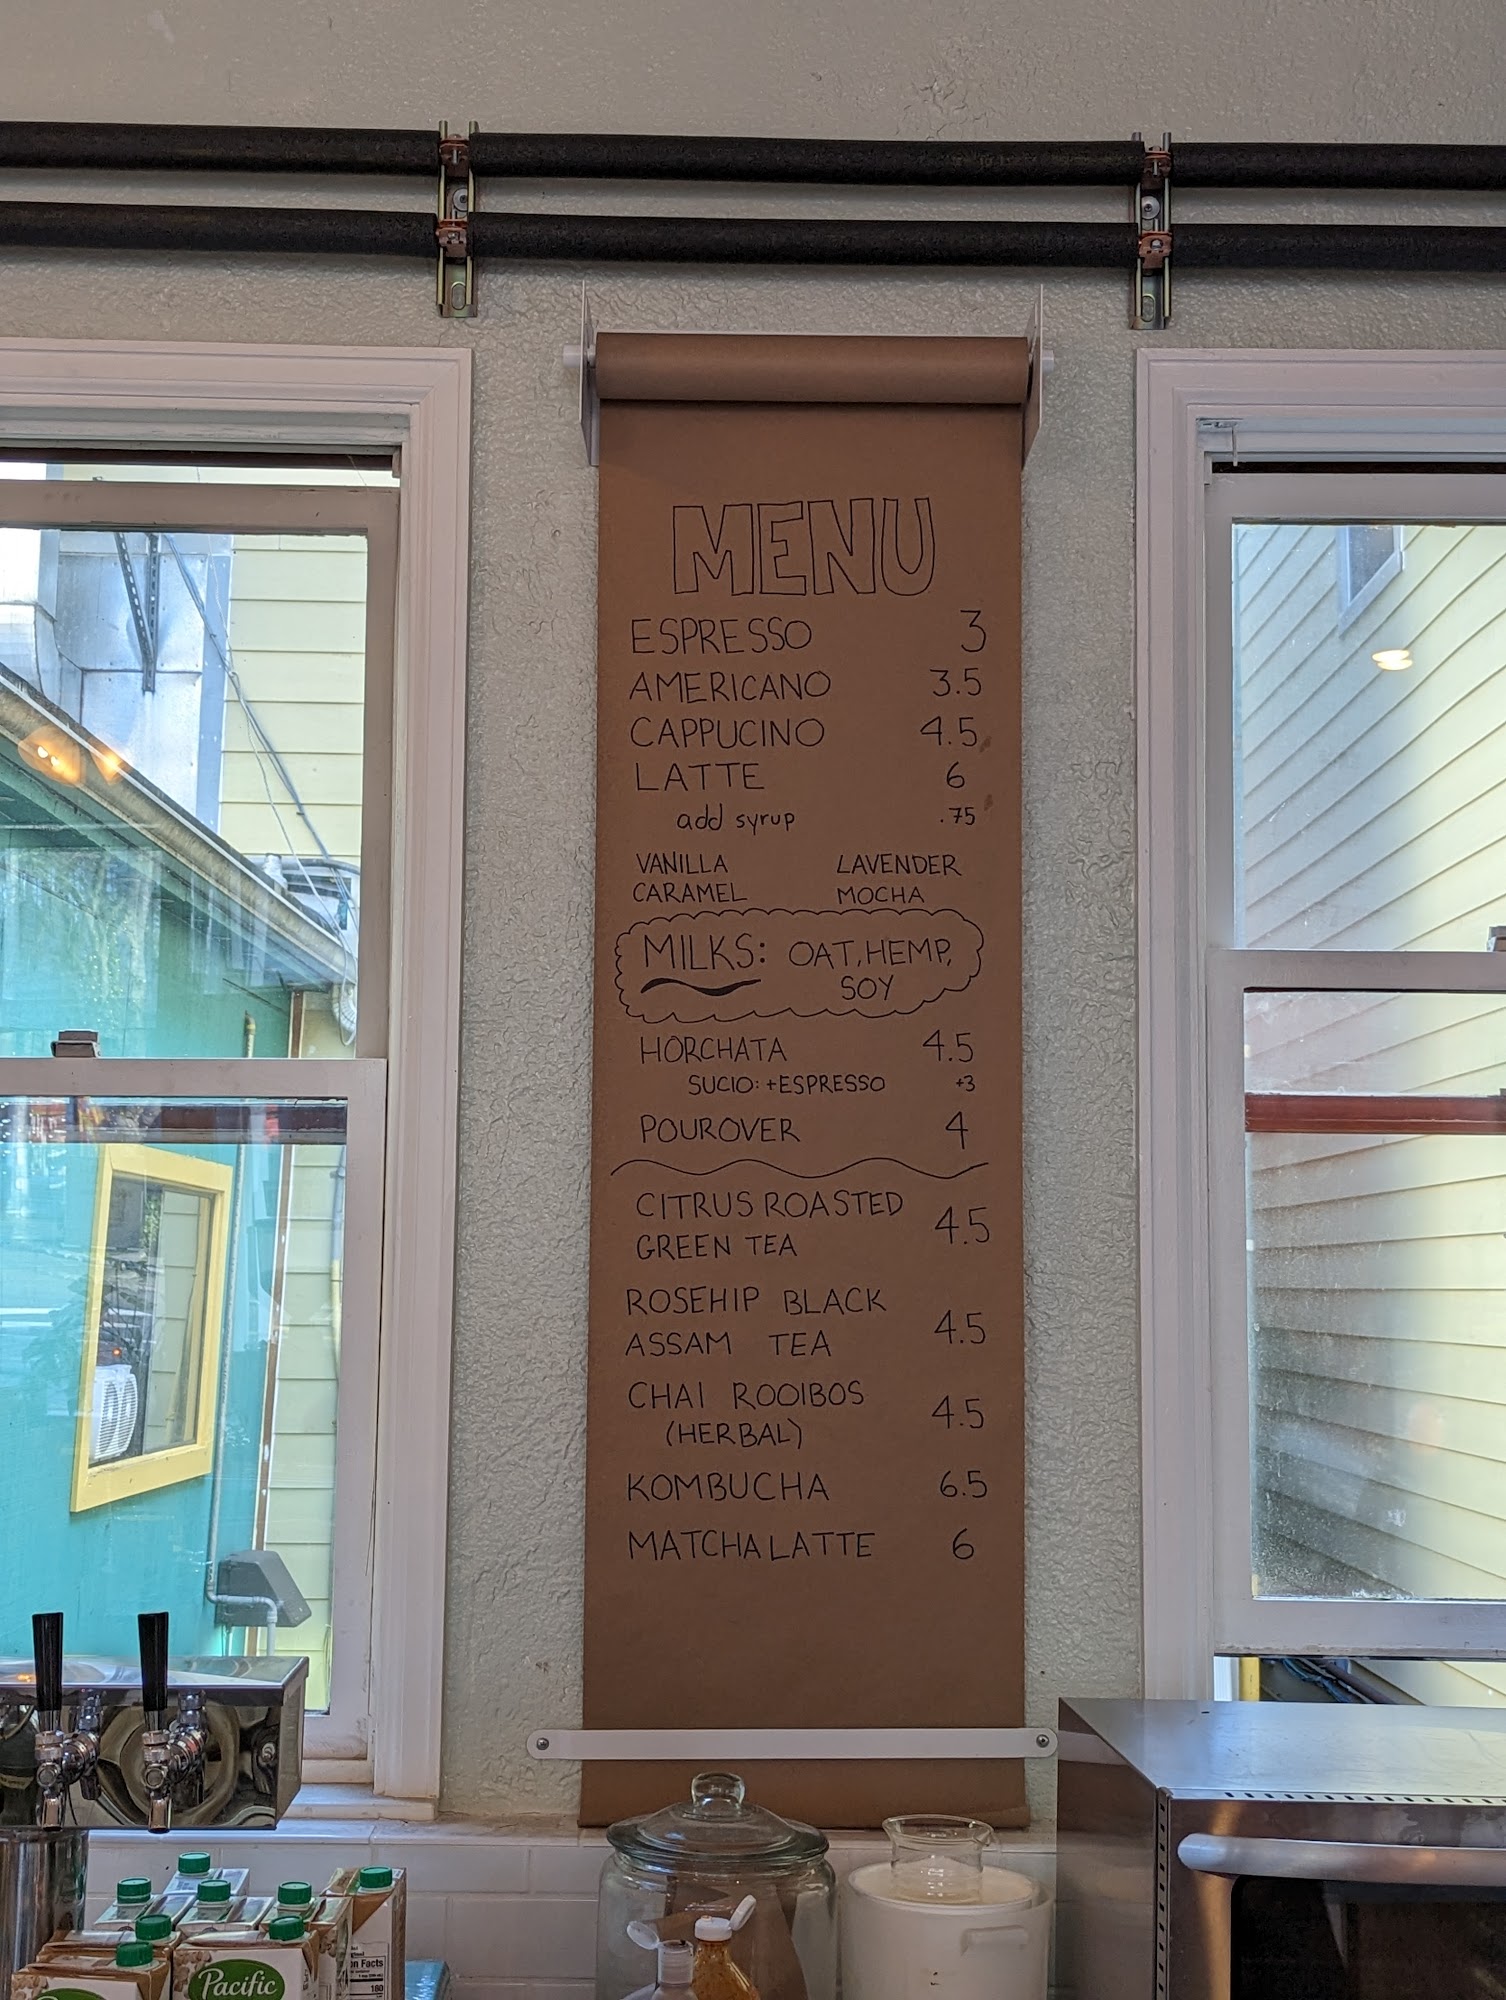 MENU
ESPRESSO 3
AMERICANO 3.5
CAPPUCINO 4.5
LATTE 6
add syrup .75
VANILLA LAVENDER
CARAMEL MOCHA
MILKS: OAT, HEMP,
SOY
HORCHATA 4.5
SUCIO: +ESPRESSO +3
POUROVER 4
CITRUS ROASTED
GREEN TEA 4.5
ROSEHIP BLACK
ASSAM TEA 4.5
CHAI ROOIBOS
(HERBAL) 4.5
KOMBUCHA 6.5
MATCHA LATTE 6
Pacific
on Facts
180